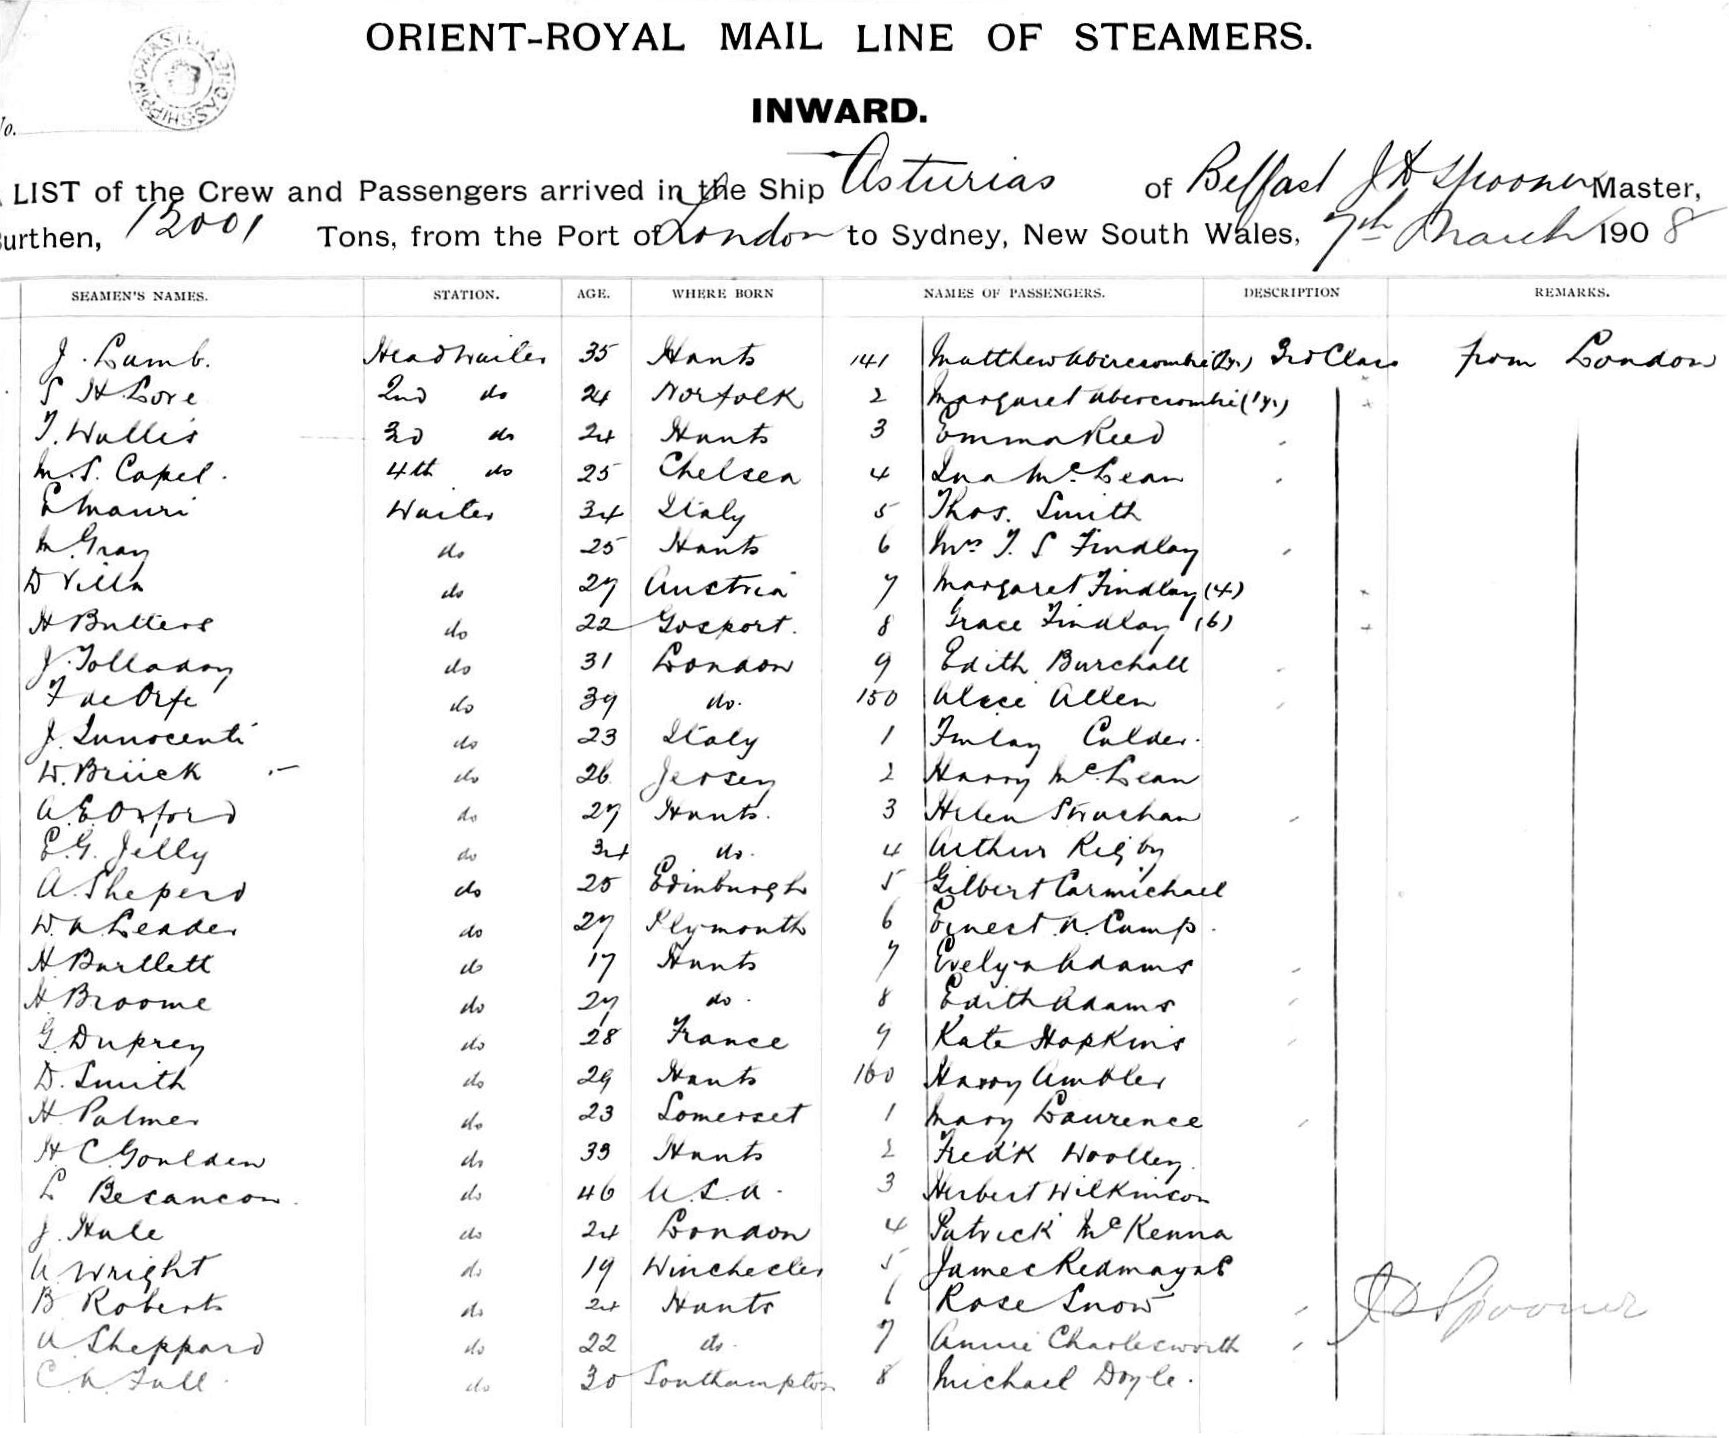 ORIENT-ROYAL MAIL LINE OF STEAMERS.
INWARD.
LIST of the Crew and Passengers arrived in the Ship Asturias of Belfast J D Spooner Master,
Burthen, 12001 Tons, from the Port of London to Sydney, New South Wales, 7th March 1908
SEAMEN'S NAMES. STATION. AGE. WHERE BORN NAMES OF PASSENGERS. DESCRIPTION REMARKS.
J. Lamb. Headwaiter 35 Hants 141 Matthew Abercrombie 3rd Class from London
S H Love 2nd do 24 Norfolk 2 Margaret Abercrombie (1yr)
T. Wallis 3d do 24 Hants 3 Emma Reed
M. S. Capel. 4th do 25 Chelsea 4 Ina McLean
E Mauri Waiter 34 Italy 5 Thos. Smith
M. Gray do 25 Hants 6 Mrs T. S Findlay
D Villa do 27 Austria 7 Margaret Findlay (4)
H Butters do 22 Gosport. 8 Grace Findlay (6)
J. Tolladay do 31 London 9 Edith Burchall
F de Orfe do 39 do. 150 Alice Allen
J. Innocenti do 23 Italy 1 Finlay Calder.
W. Brück do 26 Jersey 2 Harry McLean
A. E. Oxford do 27 Hants. 3 Helen Strachan
E. G. Jelly do 34 do. 4 Arthur Rigby
A. Sheperd do 25 Edinburgh 5 Gilbert Carmichael
W. A Leader do 27 Plymouth 6 Ernest A. Camp.
H Bartlett do 17 Hants 7 Evelyn Adams
H Broome do 27 do. 8 Edith Adams
G. Duprey do 28 France 9 Kate Hopkins
D. Smith do 29 Hants 160 Harry Ambler
H Palmer do 23 Somerset 1 Mary Laurence
H C Goulden do 33 Hants 2 Fred'k Woolley.
L Besancon. do 46 U.S.A. 3 Herbert Wilkinson
J. Hale do 24 London 4 Patrick McKenna
A. Wright do 19 Winchester 5 James Redmayne
B Roberts do 24 Hants 6 Rose Snow
A Sheppard do 22 do. 7 Annie Charlesworth
C A Fall do 30 Southampton 8 Michael Doyle.
J D Spooner